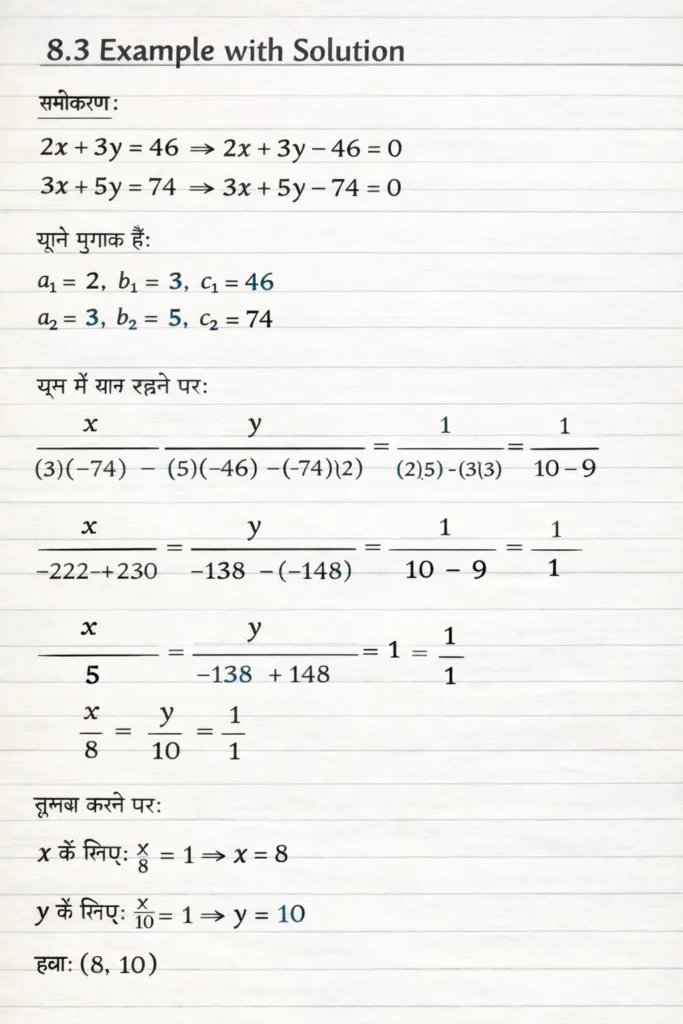 8.3 Example with Solution
समीकरण:
2x + 3y = 46 ⇒ 2x + 3y − 46 = 0
3x + 5y = 74 ⇒ 3x + 5y − 74 = 0
यूाने पुगाक हैं:
a₁ = 2, b₁ = 3, c₁ = 46
a₂ = 3, b₂ = 5, c₂ = 74
यूम में यान रहने पर:
x y 1 1
(3)(−74) − (5)(−46) −(−74)(2) = (2)5) -(3(3) = 10 − 9
x y 1 1
−222−+230 = −138 − (−148) = 10 − 9 = 1
x y 1
5 = −138 + 148 = 1 = 1
x y 1
8 = 10 = 1
करने पर:
x कें लिए: x/8 = 1 ⇒ x = 8
y कें लिए: x/10 = 1 ⇒ y = 10
हवा: (8, 10)